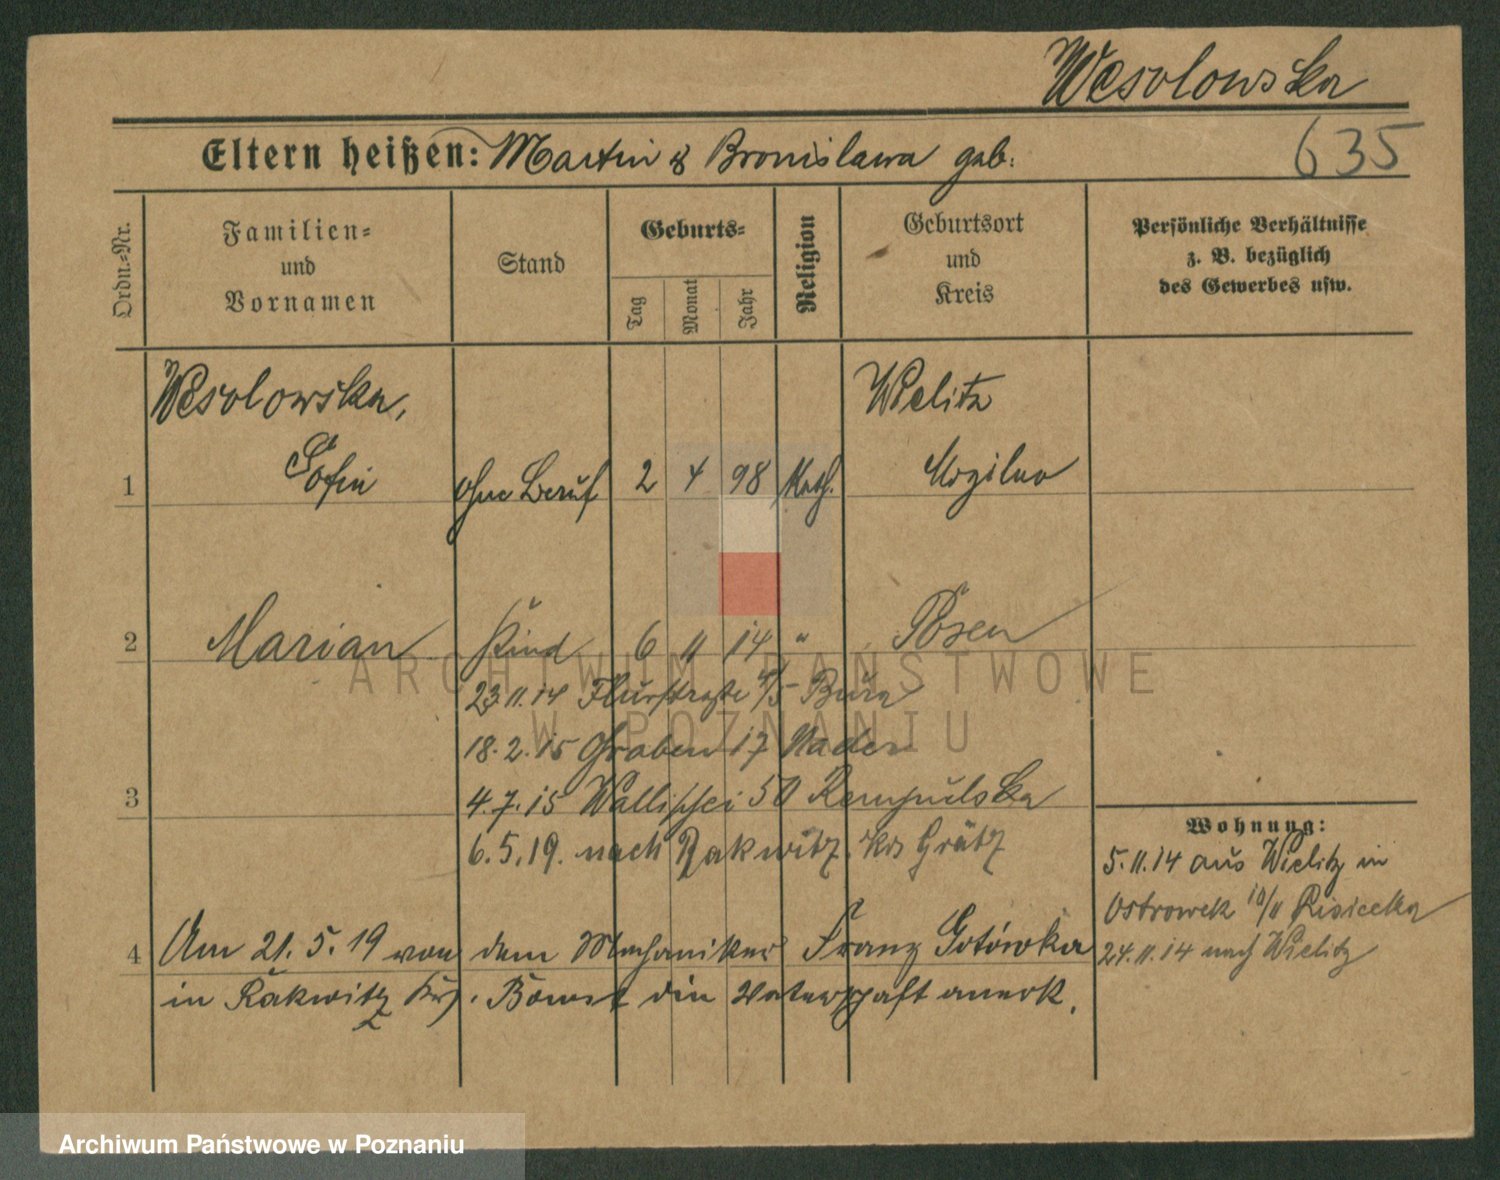 Wesolowska
635
Eltern heißen: Martin & Bronislawa geb:
Ordn.-Nr.
Familien-
und
Vornamen
Stand
Geburts-
Tag
Monat
Jahr
Religion
Geburtsort
und
Kreis
Persönliche Verhältnisse
z. B. bezüglich
des Gewerbes usw.
Wesolowska,
Wielitz
1 Sofie ohne Beruf 2 4 98 Kath. Mogilno
2 Marian Kind 6 11 14 " Posen
23.11.14 Flurstraße 4/5
18.2.15 Graben 17 Nader
3
4.7.15 Wallischei 50
6.5.19. nach Rakwitz Krs Grätz
Wohnung:
5.11.14 aus Wielitz in
Ostrowek 10/11
24.11.14 nach Wielitz
4 Am 21.5.19 von dem Mechaniker Franz Gotówka
in Rakwitz Krs. Bomst die Vaterschaft anerk.
ARCHIWUM PAŃSTWOWE
W POZNANIU
Archiwum Państwowe w Poznaniu